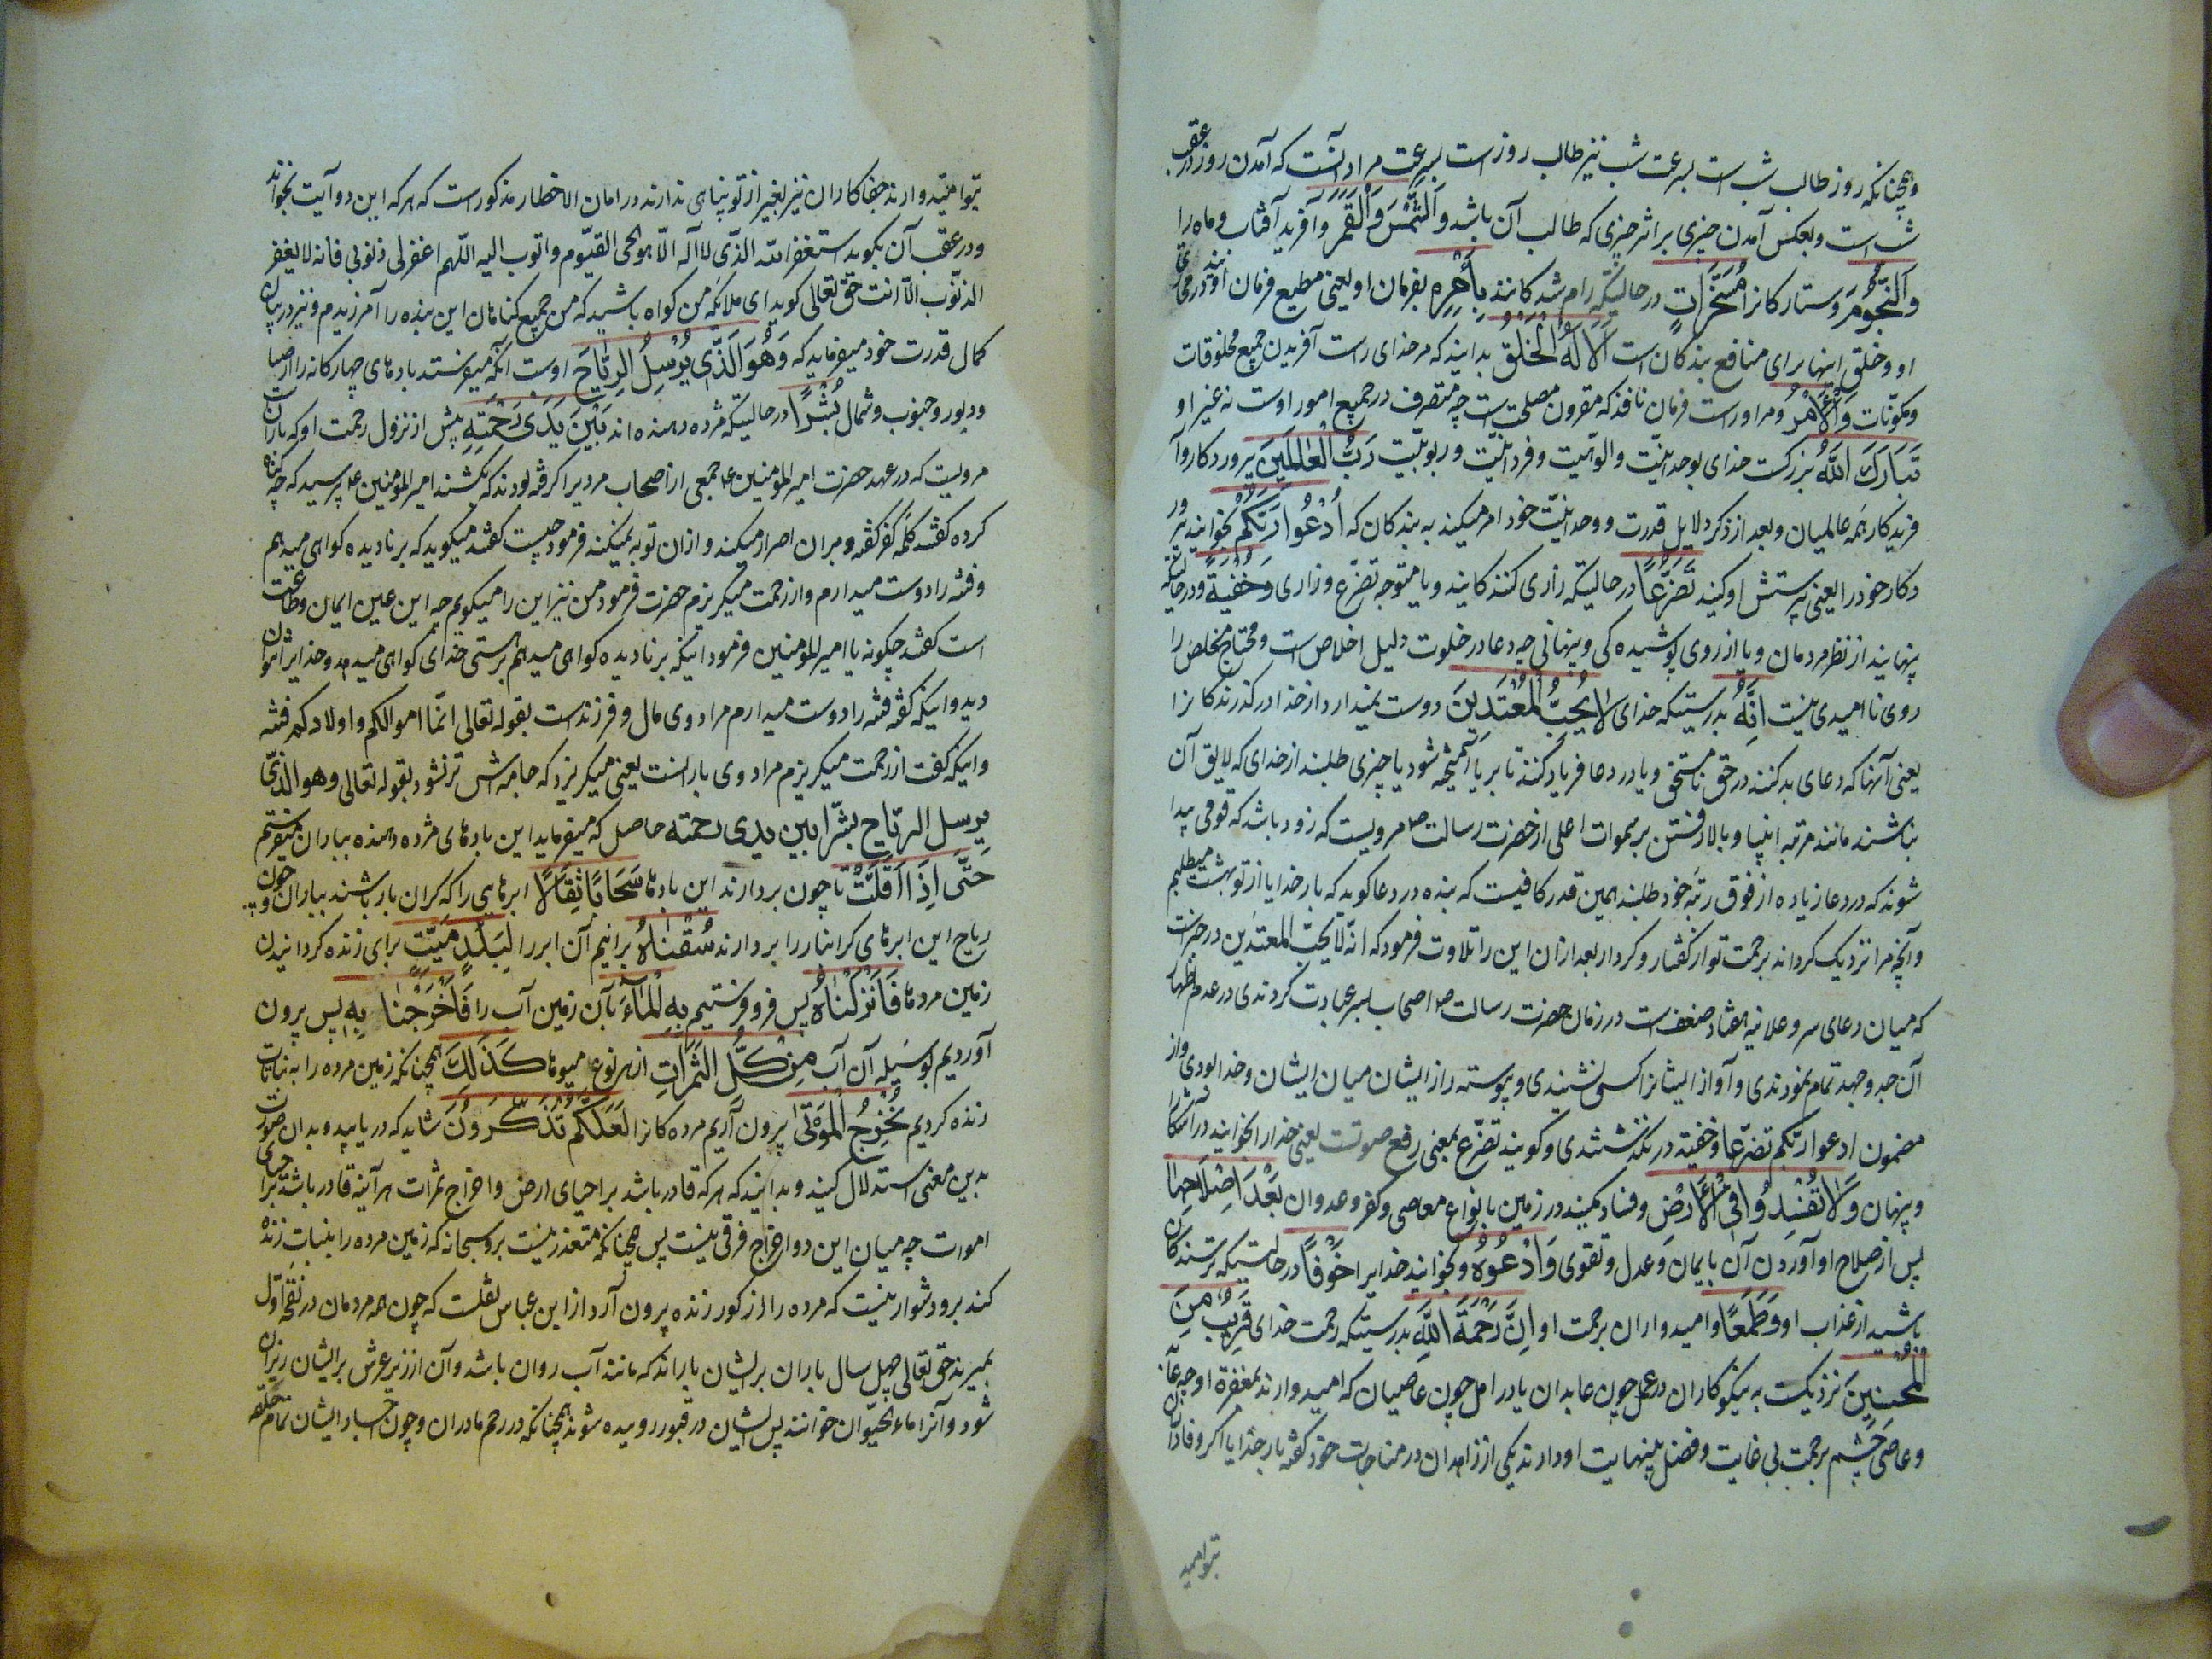 وهمچنانکه روز طالب شب است بسرعت شب نیز طالب روز است بسرعت مراد آنست که آمدن روز در عقب
شب است وبعکس آمدن چیزی بر اثر چیزی که طالب آن باشد وَالشَّمْسَ وَالْقَمَرَ وآفرید آفتاب وماه را
وَالنُّجُومَ وستارکانرا مُسَخَّرَاتٍ درحالتیکه رام شدکانند بِأَمْرِهِ بفرمان او یعنی مطیع فرمان او
او وخلق اینها برای منافع بندکان است أَلَا لَهُ الْخَلْقُ بدانید که مر خدای راست آفریدن جمیع مخلوقات
ومکوّنات وَالْأَمْرُ ومر اوراست فرمان نافذ که مقرون مصلحتست چه متصرف در جمیع امور اوست نه غیر او
تَبَارَكَ اللَّهُ بزرکست خدای بوحدانیّت والوهیّت وفردانیّت وربوبیّت رَبُّ الْعَالَمِينَ پروردکار وآ
فریدکار همه عالمیان وبعد از ذکر دلایل قدرت ووحدانیّت خود امر میکند به بندکان که أُدْعُوا رَبَّكُمْ بخوانید پرور
دکار خود را یعنی پرستش او کنید تَضَرُّعًا درحالتیکه زاری کنندکانید ویا متوجه تضرّع وزاری وَخُفْيَةً ودرحالتیکه
پنهانید از نظر مردمان ویا از روی پوشیده کی وپنهانی چه دعا در خلوت دلیل اخلاص است ومحتاج مخلص را
روی نا امیدی نیست اِنَّهُ بدرستیکه خدای لَا يُحِبُّ الْمُعْتَدِينَ دوست نمیدارد از خدا درکذرندکانرا
یعنی آنها که دعای بد کنند در حق نا مستحق ویا در دعا فریاد کنند تا بریا آمیخته شود یا چیزی طلبند از خدای که لایق آن
نباشند مانند مرتبه انبیا وبالا رفتن بر سموات اعلی از حضرت رسالت ص مرویست که زود باشد که قومی پیدا
شوند که در دعا زیاده از فوق رتبه خود طلبند همین قدر کافیست که بنده در دعا کوید که بار خدایا از تو بهشت میطلبم
وآنچه مرا نزدیک کرداند برحمت تو از کفتار وکردار بعد از ان این را تلاوت فرمود که انّه لا یحبّ المعتدین در خبرست
که میان دعای سر وعلانیه هفتاد ضعف است در زمان حضرت رسالت ص اصحاب بسر عبادت کردندی در عدم اظهار
آن جد وجهد تمام نمودندی وآواز ایشانرا کسی نشنیدی وپیوسته راز ایشان میان ایشان وخدا بودی واز
مضمون ادعوا ربّکم تضرّعا وخفیة در نکذشتندی وکویند تضرّع بمعنی رفع صوتست یعنی خدا را بخوانید در آشکارا
وپنهان وَلَا تُفْسِدُوا فِي الْأَرْضِ وفساد مکنید در زمین بانواع معاصی وکفر وعدوان بَعْدَ اِصْلَاحِهَا
پس از صلاح او آوردن آن بایمان وعدل وتقوی وَادْعُوهُ وبخوانید خدایرا خَوْفًا درحالتیکه ترسندکان
باشید از عذاب او وَطَمَعًا وامیدواران برحمت او اِنَّ رَحْمَةَ اللَّهِ بدرستیکه رحمت خدای قَرِيبٌ مِنَ
الْمُحْسِنِينَ نزدیکست به نیکوکاران در عمل چون عابدان یا در امل چون عاصیان که امیدوارند بمغفرة او چه
وعاصی چشم برحمت بی غایت وفضل بینهایت او دارند یکی از زاهدان در مناجات خود کفته بار خدایا اکر وفاداران
بتوامید
بتوامیدوارند جفاکاران نیز بغیر از تو پناهی ندارند در امان الاخطار مذکورست که هر که این دو آیت بخواند
ودر عقب آن بکوید استغفر الله الّذی لا اله الّا هو الحی القیّوم واتوب الیه اللّهم اغفر لی ذنوبی فانه لا یغفر
الذنوب الّا انت حق تعالی کوید ای ملائکه من کواه باشید که من جمیع کناهان این بنده را آمرزیدم ونیز در بیان
کمال قدرت خود میفرماید که وَهُوَ الَّذِي يُرْسِلُ الرِّيَاحَ اوست آنکه میفرستد بادهای چهارکانه را از صبا
ودبور وجنوب وشمال بُشْرًا درحالتیکه مژده دهنده اند بَيْنَ يَدَيْ رَحْمَتِهِ پیش از نزول رحمت او که بارانست
مرویست که در عهد حضرت امیر المؤمنین ع جمعی از اصحاب مردیرا کرفته بودند که بکشند امیر المؤمنین ع پرسید که چه کناه
کرده کفتند کلمه کفر کفته وبران اصرار میکند وازان توبه نمیکند فرمود چیست کفتند میکوید که بر نادیده کواهی میدهم
وفتنه را دوست میدارم واز رحمت میکریزم حضرت فرمود من نیز این را میکویم چه این عین ایمان وطاعت
است کفتند چکونه یا امیر المؤمنین فرمود اینکه بر نادیده کواهی میدهم بر هستی خدای کواهی میدهد وخدایرا نتوان
دید واینکه کفته فتنه را دوست میدارم مراد وی مال وفرزندست بقوله تعالی انّما اموالکم واولادکم فتنه
واینکه کفت از رحمت میکریزم مراد وی بارانست یعنی میکریزد که جامه اش تر نشود بقوله تعالی وهو الذّی
یرسل الریاح بشرا بین یدی رحمته حاصل که میفرماید این بادهای مژده دهنده بباران میفرستم
حَتَّى اِذَا اَقَلَّتْ تا چون بردارند این بادها سَحَابًا ثِقَالًا ابرهایی را که کران بار باشند بباران وچون
ریاح این ابرهای کرانبار را بردارند سُقْنَاهُ برانیم آن ابر را لِبَلَدٍ مَيِّتٍ برای زنده کردانیدن
زمین مردها فَاَنْزَلْنَاهُ پس فرو فرستیم بِهِ الْمَاءَ بآن زمین آب را فَاَخْرَجْنَا بِهِ پس پیرون
آوردیم بوسیله آن آب مِنْ كُلِّ الثَّمَرَاتِ از هر نوع میوها كَذَلِكَ همچنانکه زمین مرده را به نباتات
زنده کردیم نُخْرِجُ الْمَوْتَى پیرون آریم مرده کانرا لَعَلَّكُمْ تَذَكَّرُونَ شاید که دریابید وبدان صورت
بدین معنی استدلال کنید وبدانید که هر که قادر باشد بر احیای ارض واخراج ثمرات هر آینه قادر باشد بر احیای
اموات چه میان این دو اخراج فرقی نیست پس همچنانکه متعذر نیست برو سبحانه که زمین مرده را بنبات زنده
کند برو دشوار نیست که مرده را از کور زنده پیرون آرد از ابن عباس نقلست که چون همه مردمان در نفخه اوّل
بمیرند حق تعالی چهل سال باران بر ایشان باراند که مانند آب روان باشد وآن از زیر عرش بر ایشان ریزان
شود وآنرا ماء الحیوان خوانند پس ایشان در قبور روییده شوند همچنانکه در رحم مادران وچون اجساد ایشان تمام خلقه